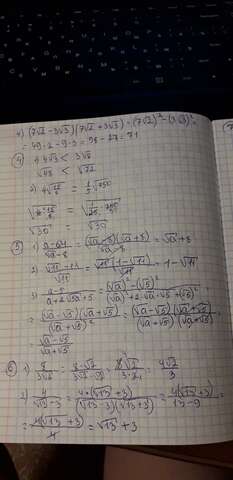 4) (7√2 - 3√3)(7√2 + 3√3) = (7√2)² - (3√3)² =
= 49·2 - 9·3 = 98 - 27 = 71
④ 1) 4√3 < 3√8
√48 < √72
2) = 1/5 √750
√30 = √30
⑤ 1) (a-64)/(√a-8) = (√a-8)(√a+8)/(√a-8) = √a+8
2) (√11-11)/√11 = √11(1-√11)/√11 = 1-√11
3) (a-5)/(a+2√5a+5) = ((√a)²-(√5)²)/((√a)²+2·√a·√5+(√5)²) =
= (√a-√5)(√a+√5)/(√a+√5)² = (√a-√5)(√a+√5)/(√a+√5)(√a+√5) =
= (√a-√5)/(√a+√5)
⑥ 1) 8/(3√2) = 8·√2/(3√2·√2) = 8√2/(3·2) = 4√2/3
2) 4/(√13-3) = 4·(√13+3)/(√13-3)(√13+3) = 4(√13+3)/(13-9) =
= 4(√13+3)/4 = √13+3